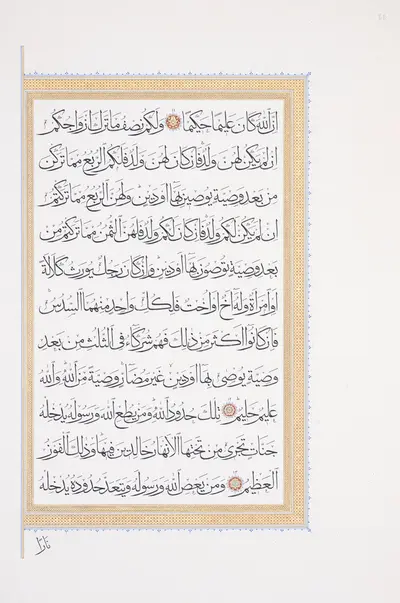 إن الله كان عليما حكيما ولكم نصف ما ترك أزواجكم
إن لم يكن لهن ولد فإن كان لهن ولد فلكم الربع مما تركن
من بعد وصية يوصين بها أو دين ولهن الربع مما تركتم
إن لم يكن لكم ولد فإن كان لكم ولد فلهن الثمن مما تركتم من
بعد وصية توصون بها أو دين وإن كان رجل يورث كلالة
أو امرأة وله أخ أو أخت فلكل واحد منهما السدس
فإن كانوا أكثر من ذلك فهم شركاء في الثلث من بعد
وصية يوصى بها أو دين غير مضار وصية من الله والله
عليم حليم تلك حدود الله ومن يطع الله ورسوله يدخله
جنات تجري من تحتها الأنهار خالدين فيها وذلك الفوز
العظيم ومن يعص الله ورسوله ويتعد حدوده يدخله
نارا